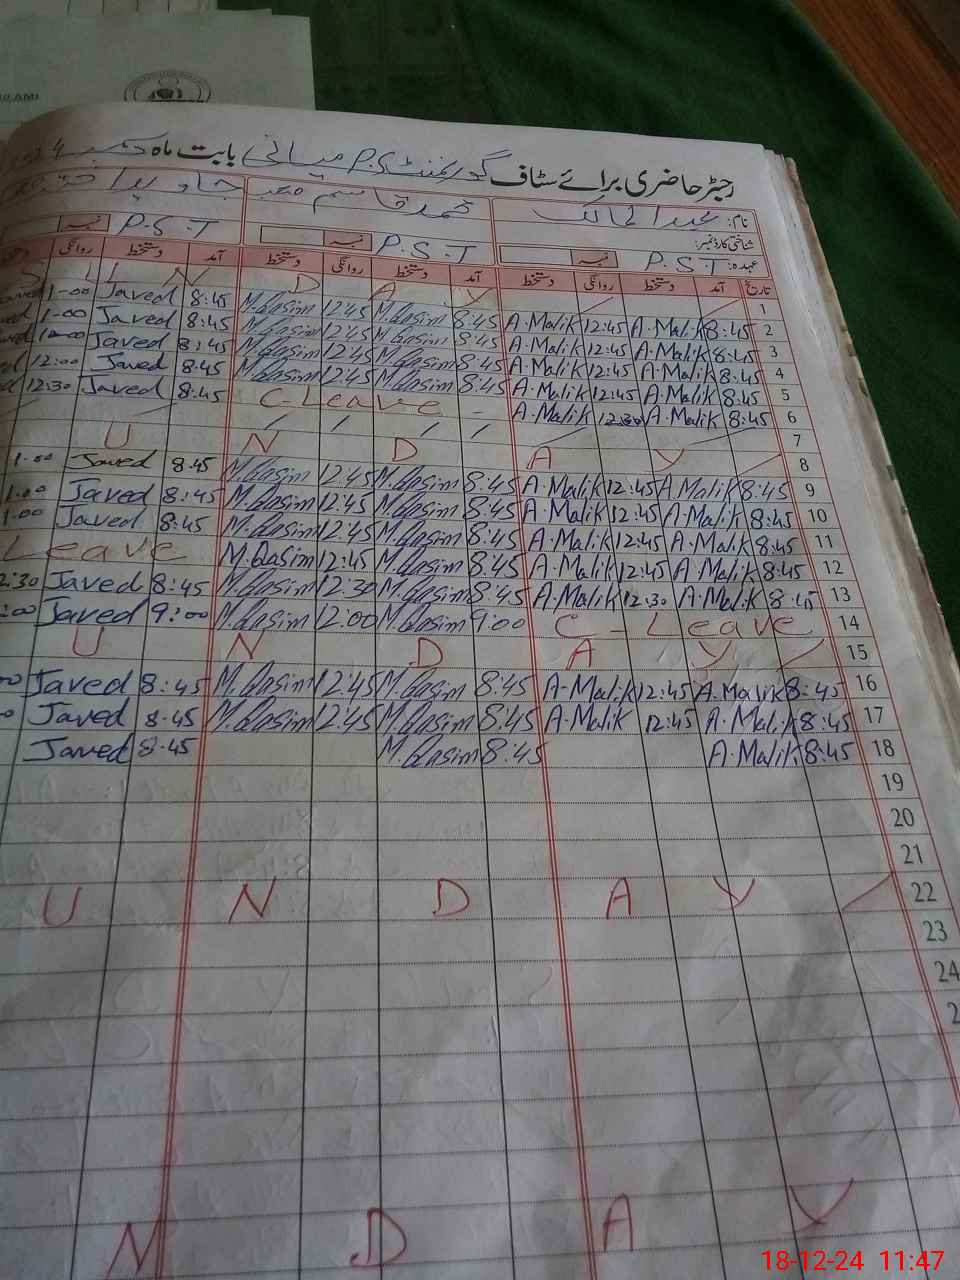 رجسٹر حاضری برائے سٹاف گورنمنٹ P.S میانی بابت ماہ دسمبر 2024
نام: عبدالمالک محمد قاسم جاوید اختر
شناختی کارڈ نمبر:
عہدہ: P.S.T نمبر P.S.T نمبر P.S.T نمبر
تاریخ آمد دستخط روانگی دستخط آمد دستخط روانگی دستخط آمد دستخط روانگی
1 Y A D N U
2 8:45 A.Malik 12:45 A.Malik 8:45 M.Qasim 12:45 M.Qasim 8:45 Javed 1-00
3 8:45 A.Malik 12:45 A.Malik 8:45 M.Qasim 12:45 M.Qasim 8:45 Javed 1-00
4 8:45 A.Malik 12:45 A.Malik 8:45 M.Qasim 12:45 M.Qasim 8:45 Javed
5 8:45 A.Malik 12:45 A.Malik 8:45 M.Qasim 12:45 M.Qasim 8:45 Javed 12:00
6 8:45 A.Malik 12:30 A.Malik C-Leave 8:45 Javed 12:30
7
8 U N D A Y
9 8:45 A.Malik 12:45 A.Malik 8:45 M.Qasim 12:45 M.Qasim 8:45 Javed 1.00
10 8:45 A.Malik 12:45 A.Malik 8:45 M.Qasim 12:45 M.Qasim 8:45 Javed 1.00
11 8:45 A.Malik 12:45 A.Malik 8:45 M.Qasim 12:45 M.Qasim 8:45 Javed 1.00
12 8:45 A.Malik 12:45 A.Malik 8:45 M.Qasim 12:45 M.Qasim Leave
13 8:45 A.Malik 12:30 A.Malik 8:45 M.Qasim 12:30 M.Qasim 8:45 Javed 2:30
14 C-Leave 9:00 M.Qasim 12:00 M.Qasim 9:00 Javed :00
15 U N D A Y
16 8:45 A.Malik 12:45 A-Malik 8:45 M.Qasim 12:45 M.Qasim 8:45 Javed
17 8:45 A.Malik 12:45 A.Malik 8:45 M.Qasim 12:45 M.Qasim 8.45 Javed
18 8:45 A.Malik 8:45 M.Qasim 8.45 Javed
19
20
21
22 U N D A Y
23
24
2
N D A Y
18-12-24 11:47